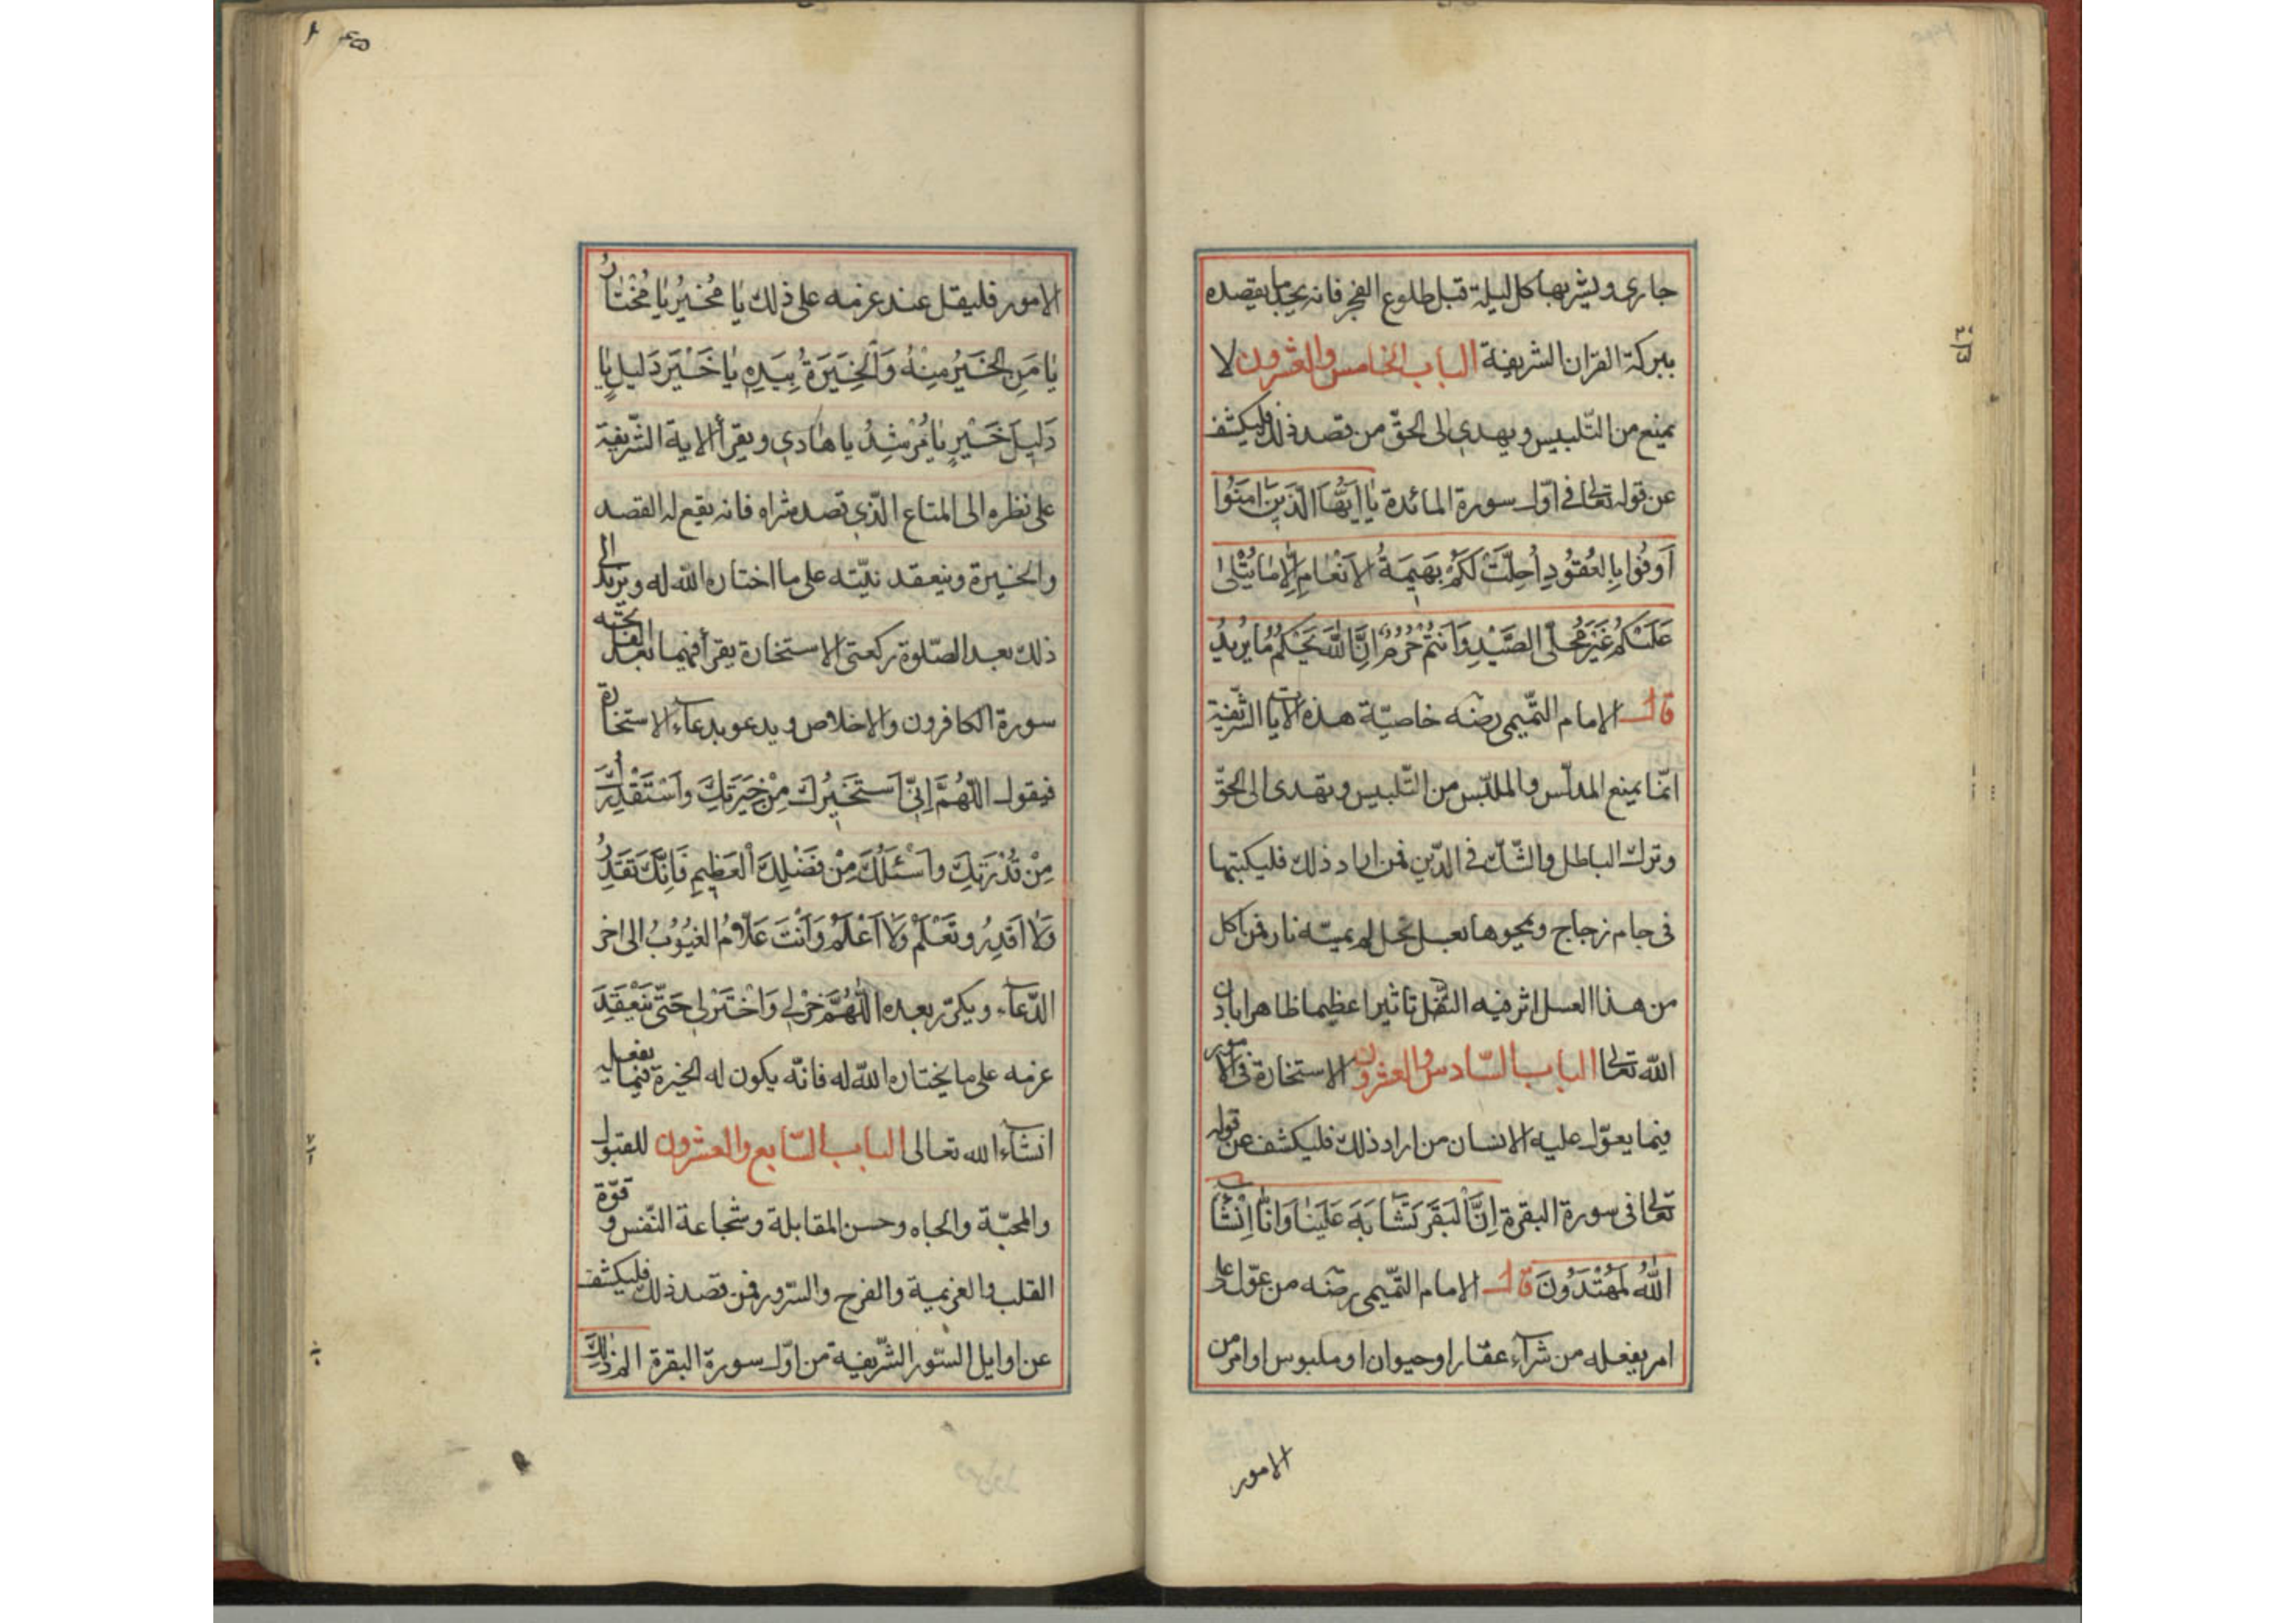 جارى ويشربها كل ليلة قبل طلوع الفجر فانه يجد ما يقصده
ببركة القران الشريفة الباب الخامس والعشرون لا
يمنع من التّلبيس ويهدي الى الحقّ من قصد ذلك فليكشف
عن قوله تعالى فى اوّل سورة المائدة يٰا اَيُّهَا الَّذينَ امَنُوا
اَوفُوا بِالعُقوُدِ اُحِلَّتْ لَكُمْ بَهيمَةُ الاَنْعٰامِ اِلّا مٰا يُتْلٰى
عَلَيْكُمْ غَيْرَ مُحِلّى الصَّيْدِ وَاَنتُمْ حُرُمٌ اِنَّ اللّٰهَ يَحْكُمُ مٰا يُريدُ
قال الامام التّميمى رضه خاصيّة هذه الآيات الشّريفة
انّها يمنع المدلّس والملبّس من التّلبيس وتهدى الى الحقّ
وترك الباطل والشّك فى الدّين فمن اراد ذلك فليكتبها
فى جام زجاج ويمحوها بعسل نحل لم يمسّه نار فمن اكل
من هذا العسل اثر فيه التقل تاثيرا عظيما ظاهرا باذن
الله تعالى الباب السّادس والعشرون الاستخارة فى الامور
فيما يعوّل عليه الانسان من اراد ذلك فليكشف عن قوله
تعالى فى سورة البقرة اِنَّ البَقَرَ تَشٰابَهَ عَلَينٰا وَاِنّٰا اِنْشٰآءَ
اللّٰهُ لَمُهْتَدُونَ قال الامام التّميمى رضه من عوّل على
امر يفعله من شرآء عقار او حيوان او ملبوس او امر من
الامور
الامور فليقل عند عزمه على ذلك يٰا مُخيرُ يٰا مُخْتٰارُ
يٰا مَنِ الخَيْرُ مِنْهُ وَالْخِيَرَةُ بِيَدِهِ يٰا خَيْرَ دَليلٍ يٰا
دَليلَ خَيْرٍ يٰا مُرْشِدُ يا هٰادي ويقرأ الاية الشّريفة
على نظره الى المتاع الّذي قصد شراه فانه يقع له القصد
والخيرة وينعقد نيّته على ما اختاره اللّه له ويزيد الى
ذلك بعد الصّلوة ركعتى الاستخارة يقرأ فيهما بعد الفاتحه
سورة الكافرون والاخلاص ويدعو بدعآء الاستخارة
فيقول اللّهُمَّ اِنّي اَستَخيرُكَ مِنْ خِيَرَتِكَ واَسْتَقْدِرُكَ
مِنْ قُدْرَتِكَ واَسْئَلُكَ مِنْ فَضْلِكَ الْعَظيمِ فَاِنَّكَ تَقدِرُ
وَلاٰ اَقدِرُ وتَعْلَمُ وَلاٰ اَعْلَمُ وَاَنْتَ عَلّامُ الغُيُوُبُ الى اخر
الدّعآء ويكرّر بعده اللّٰهُمَّ خِرْلي وَاخْتَرْلي حَتّى يَنْعَقِدَ
عزمه على ما يختاره اللّه له فانّه يكون له الخيرة فيما يفعله
انشآء الله تعالى الباب السّابع والعشرون للقبول
والمحبّة والجاه وحسن المقابلة وشجاعة النّفس وقوّة
القلب والعزيمة والفرح والسّرور فمن قصد ذلك فليكشف
عن اوايل السّور الشّريفة من اوّل سورة البقرة الم ذٰلِكَ